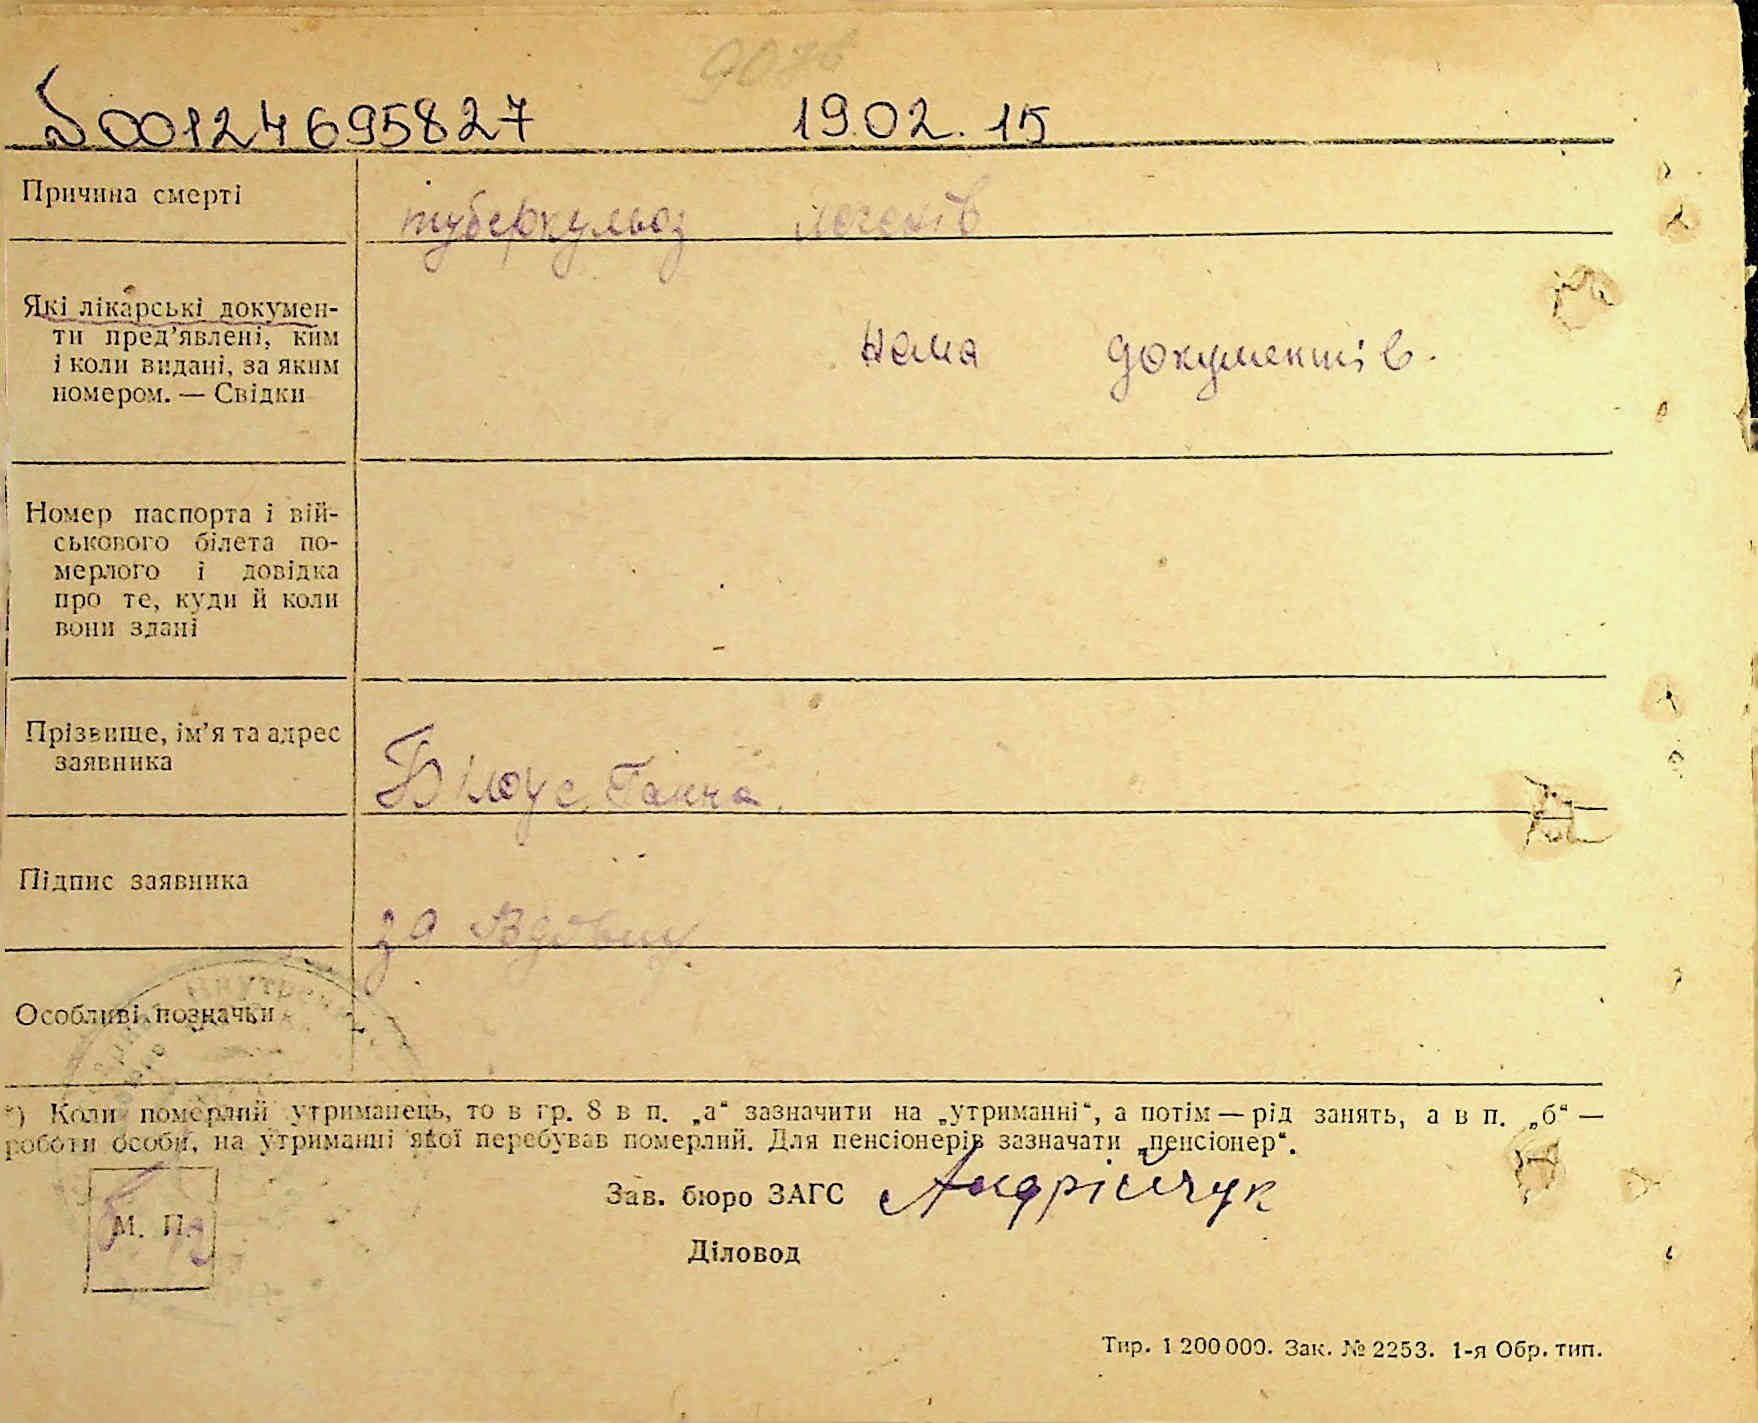 00124695827 19.02.15
Причина смерті
туберкульоз легенів
Які лікарські докумен-
ти пред'явлені, ким
і коли видані, за яким
номером. — Свідки
нема документів.
Номер паспорта і вій-
ськового білета по-
мерлого і довідка
про те, куди й коли
вони здані
Прізвище, ім'я та адрес
заявника
Білоус Ганна.
Підпис заявника
за
Особливі позначки
*) Коли померлий утриманець, то в гр. 8 в п. „а“ зазначити на „утриманні“, а потім — рід занять, а в п. „б“ —
роботи особи, на утриманні якої перебував померлий. Для пенсіонерів зазначати „пенсіонер“.
Зав. бюро ЗАГС Андрійчук
М. П.
Діловод
Тир. 1 200 000. Зак. № 2253. 1-я Обр. тип.